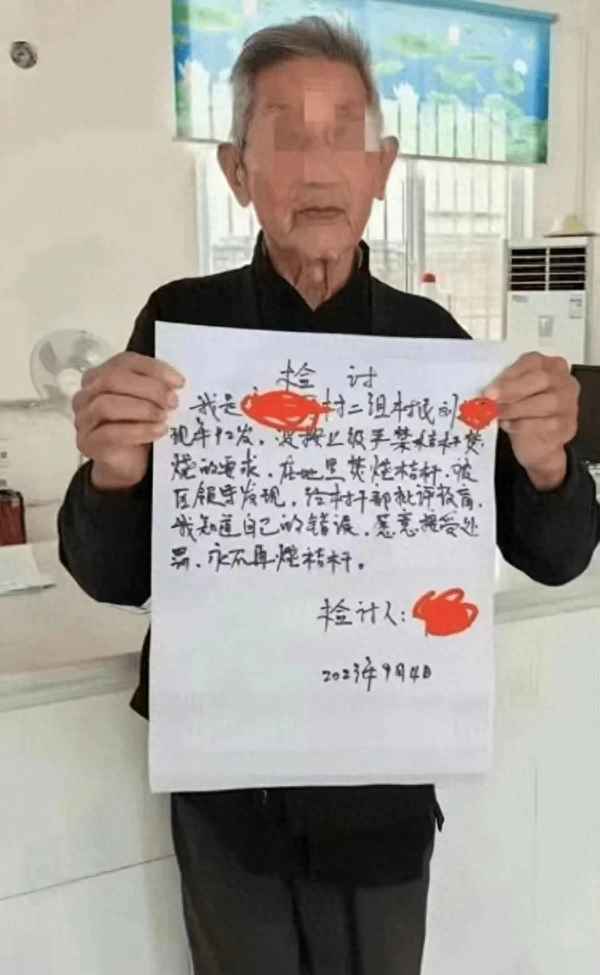 检 讨
我是 村二组村民刘
现年92岁，没按上级严禁桔杆焚
烧的要求，在地里焚烧桔杆，被
区领导发现，经村干部批评教育，
我知道自己的错误，愿意接受处
罚、永不再烧桔杆。
检讨人：
2023年9月4日